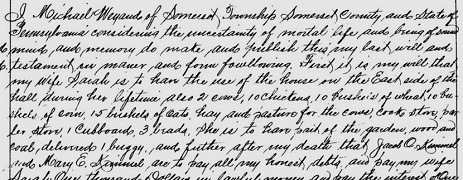 I Michael Weyand of Somerset Township Somerset County and State of
Pennsylvania considering the uncertainty of mortal life and being of sound
mind, and memory do make and publish this my last will and
testament in maner and form fowllowing. First it is my will that
my wife Sarah is to han the use of the house on the East side of the
hall during her lifetime also 2 cows, 10 chickens, 10 bushels of wheat, 10 bu-
shels of corn, 15 bushels of Oats, hay and pasture for the cows, cook stove, par-
lor stove, 1 Cubboard, 3 beads. She is to han part of the garden, wood and
coal, delivered 1 buggy, and further after my death that Jacob O. Kimmel
and Mary E. Kimmel are to pay all my honest debts, and pay my wife
Sarah One thousand Dollars in lawful money and pay the interest